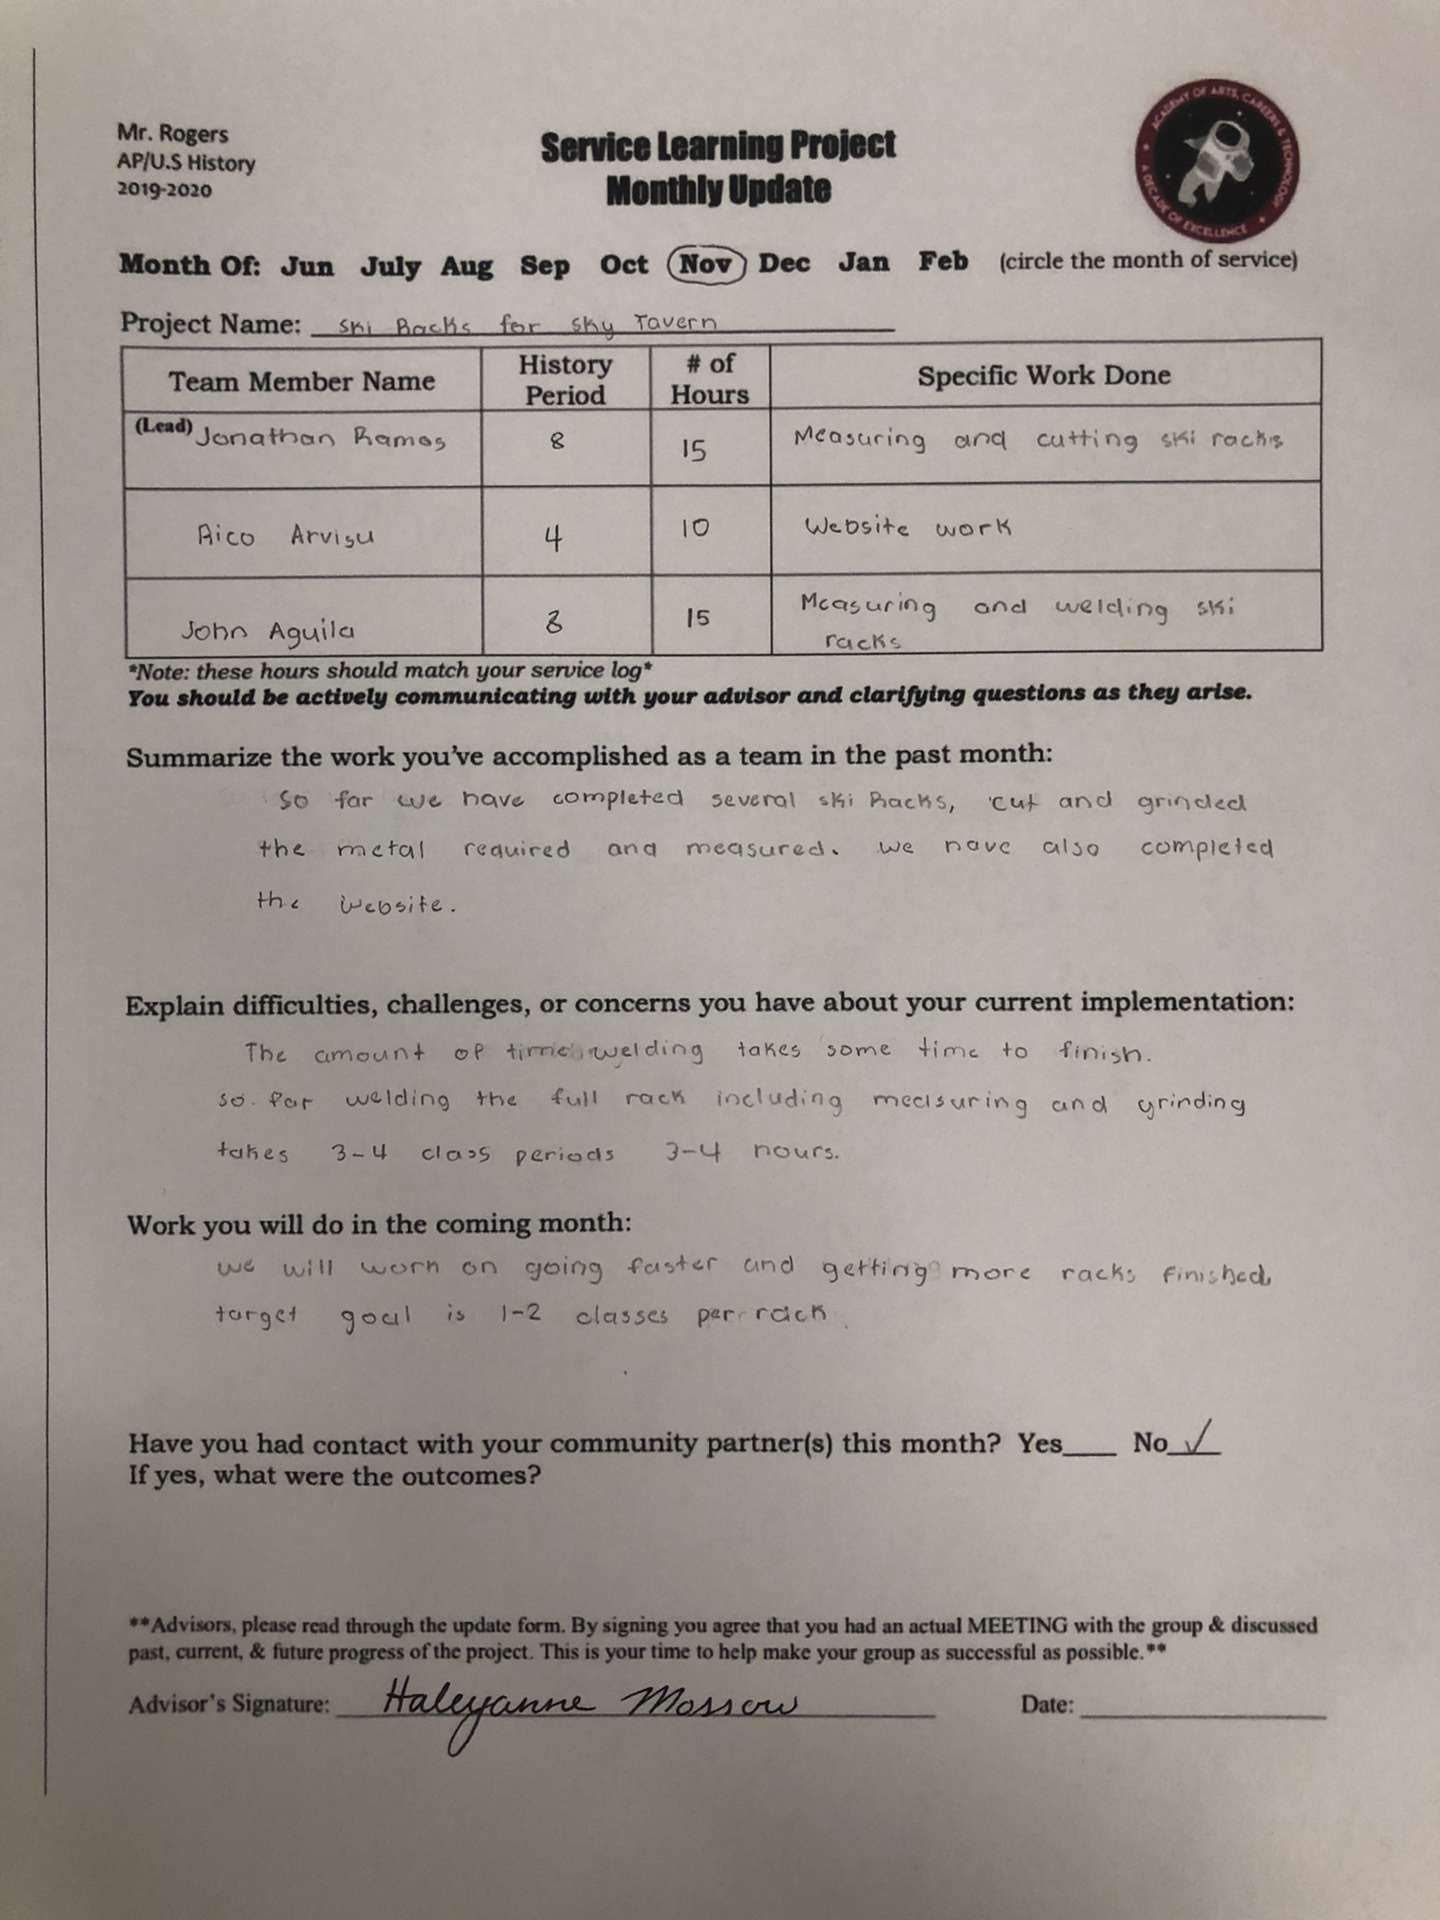 Mr. Rogers
AP/U.S History
2019-2020
Service Learning Project
Monthly Update
ACADEMY OF ARTS, CAREERS & TECHNOLOGY
A DECADE OF EXCELLENCE
Month Of: Jun July Aug Sep Oct Nov Dec Jan Feb (circle the month of service)
Project Name: Ski Racks for Sky Tavern
Team Member Name
History
Period
# of
Hours
Specific Work Done
(Lead) Jonathan Ramos 8 15 Measuring and cutting ski racks
Rico Arvisu 4 10 Website work
John Aguila 8 15 Measuring and welding ski
racks
*Note: these hours should match your service log*
You should be actively communicating with your advisor and clarifying questions as they arise.
Summarize the work you've accomplished as a team in the past month:
So far we have completed several ski Racks, cut and grinded
the metal required and measured. we have also completed
the website.
Explain difficulties, challenges, or concerns you have about your current implementation:
The amount of time welding takes some time to finish.
so far welding the full rack including measuring and grinding
takes 3-4 class periods 3-4 hours.
Work you will do in the coming month:
we will work on going faster and getting more racks finished,
target goal is 1-2 classes per rack.
Have you had contact with your community partner(s) this month? Yes____ No ✓
If yes, what were the outcomes?
**Advisors, please read through the update form. By signing you agree that you had an actual MEETING with the group & discussed
past, current, & future progress of the project. This is your time to help make your group as successful as possible.**
Advisor's Signature: Haleyanne Mossow Date: